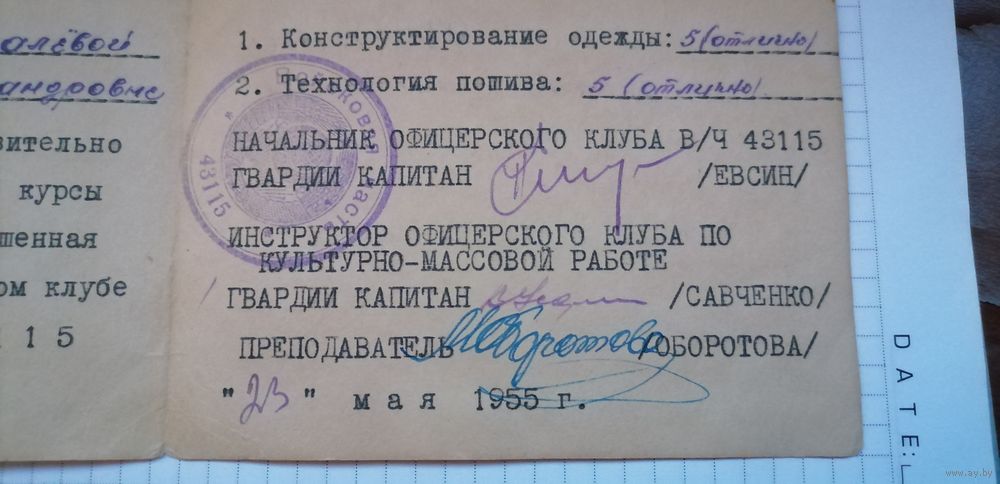 алёвой
андровне
вительно
курсы
шенная
ом клубе
1 1 5
1. Конструктирование одежды: 5 (отлично)
2. Технология пошива: 5 (отлично)
НАЧАЛЬНИК ОФИЦЕРСКОГО КЛУБА В/Ч 43115
ГВАРДИИ КАПИТАН /ЕВСИН/
ИНСТРУКТОР ОФИЦЕРСКОГО КЛУБА ПО
КУЛЬТУРНО-МАССОВОЙ РАБОТЕ
ГВАРДИИ КАПИТАН /САВЧЕНКО/
ПРЕПОДАВАТЕЛЬ /ОБОРОТОВА/
"23" мая 1955 г.
43115
DATE:
www.ay.by